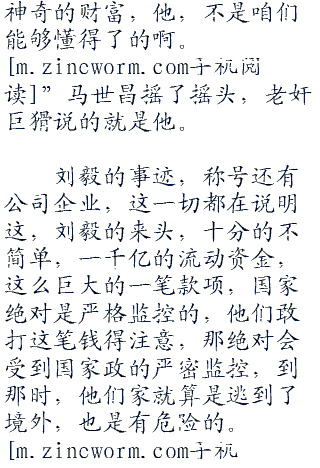 神奇的财富，他，不是咱们
能够懂得了的啊。
[m.zincworm.com手机阅
读]”马世昌摇了摇头，老奸
巨猾说的就是他。
刘毅的事迹，称号还有
公司企业，这一切都在说明
这，刘毅的来头，十分的不
简单，一千亿的流动资金，
这么巨大的一笔款项，国家
绝对是严格监控的，他们敢
打这笔钱得注意，那绝对会
受到国家政的严密监控，到
那时，他们家就算是逃到了
境外，也是有危险的。
[m.zincworm.com手机